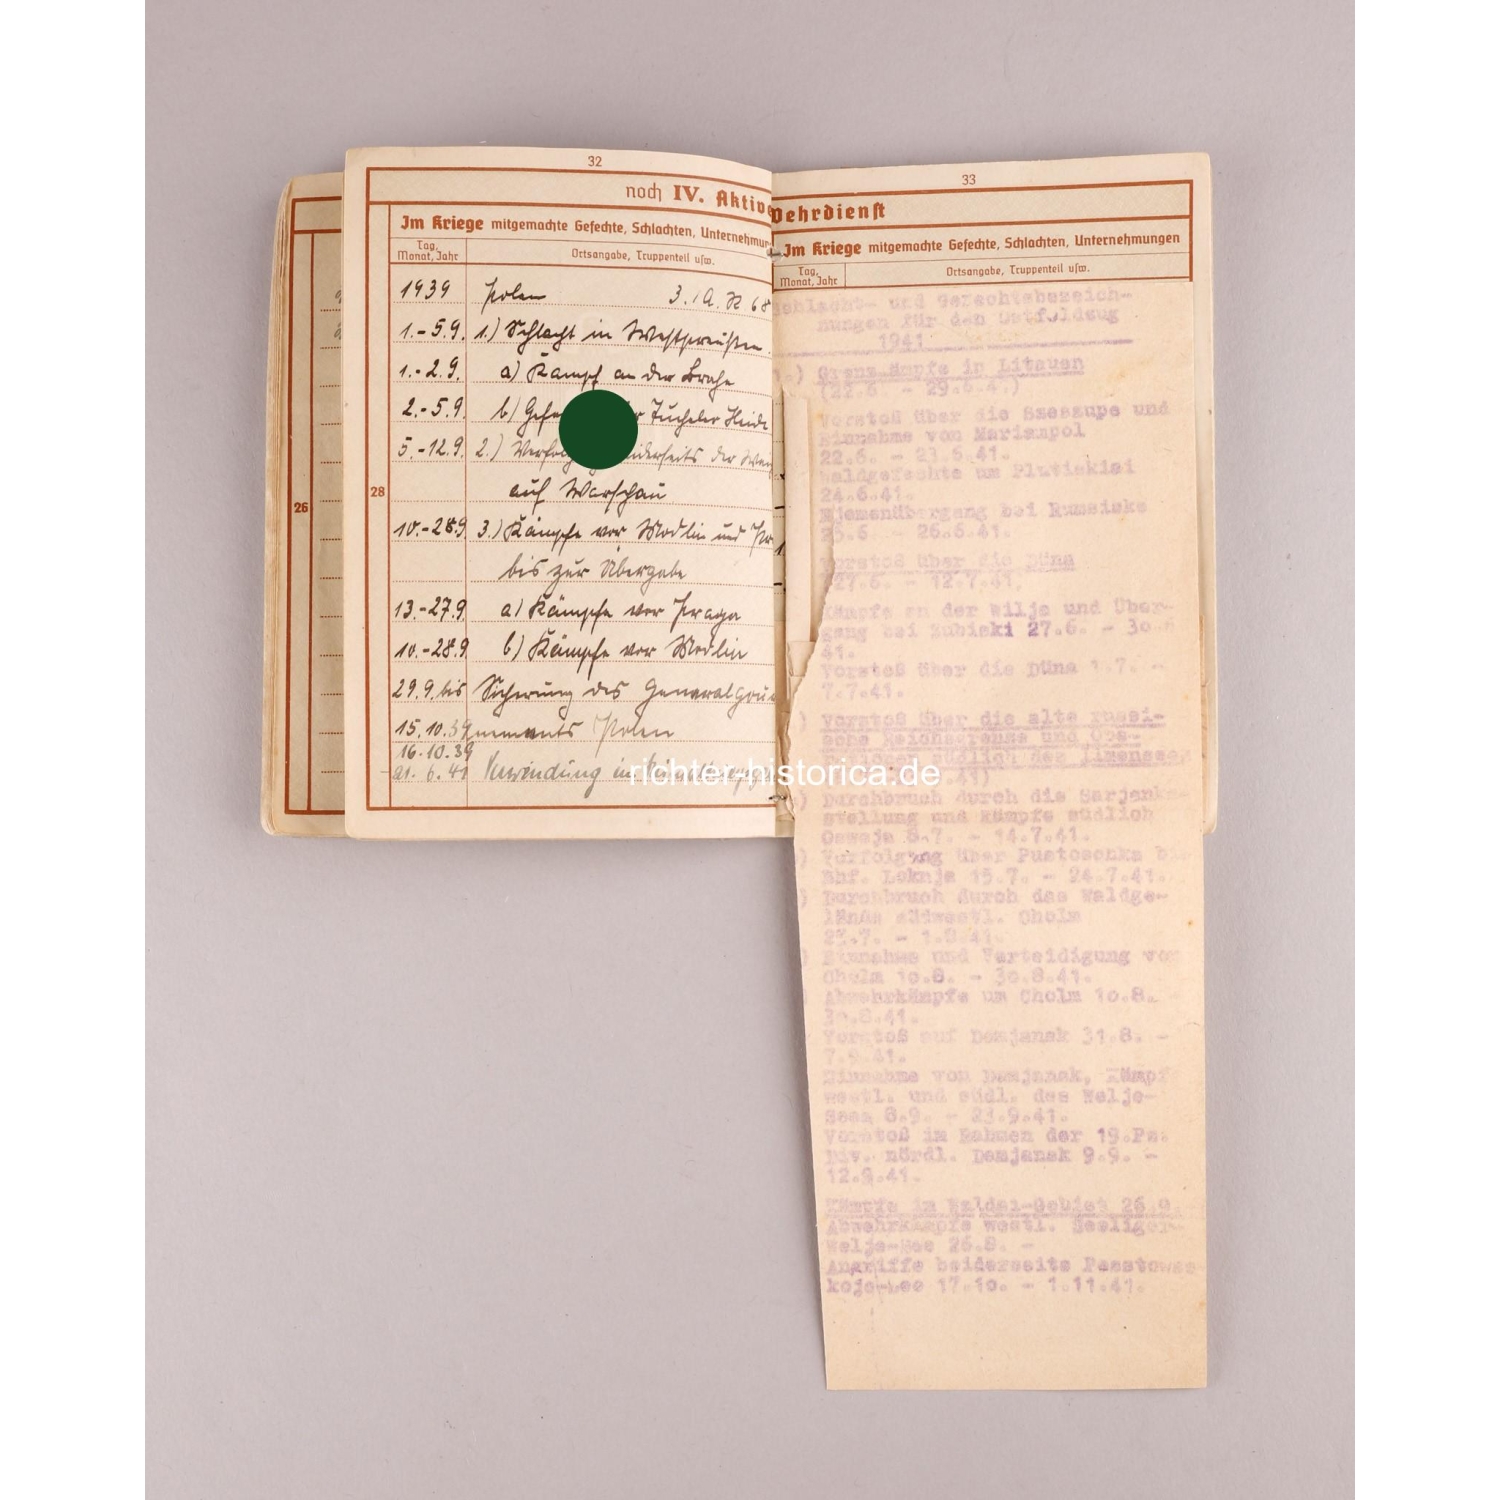 32
noch IV. Aktive
Im Kriege mitgemachte Gefechte, Schlachten, Unternehmun
Tag, Monat, Jahr
Ortsangabe, Truppenteil usw.
1939 Polen 3./A.R 68
1.-5.9. 1.) Schlacht in Westpreußen.
1.-2.9. a) Kampf an der Brahe
2.-5.9. b) Gefe r Tucheler Heide
5.-12.9. 2.) Verfol iderseits der Wei
auf Warschau
10.-28.9. 3.) Kämpfe vor Modlin und Pr
bis zur Übergabe
13.-27.9. a) Kämpfe vor Praga
10.-28.9 b) Kämpfe vor Modlin
29.9. bis Sicherung des Generalgou
15.10.39 nements Polen
16.10.39
21.6.41 Verwendung im
26
28
richter-historica.de
33
Wehrdienst
Im Kriege mitgemachte Gefechte, Schlachten, Unternehmungen
Tag, Monat, Jahr
Ortsangabe, Truppenteil usw.
Schlacht- und Gefechtsbezeich-
nungen für den Ostfeldzug
1941
1.) Grenzkämpfe in Litauen
(22.6. - 29.6.41)
Vorstoß über die Szeszupe und
Einnahme von Mariampol
22.6. - 23.6.41.
Waldgefechte um
24.6.41.
Niemenübergang bei Rumsiske
25.6 - 26.6.41.
Vorstoß über die Düna
(27.6. - 12.7.41.
Kämpfe an der Wilja und Über-
gang bei Zubiski 27.6. - 30.6
41.
Vorstoß über die Düna 1.7. -
7.7.41.
) Vorstoß über die alte russi-
sche Reichsgrenze und
südlich des Ilmensees
) Durchbruch durch die
stellung und Kämpfe südlich
Osweja 8.7. - 14.7.41.
) Verfolgung über Pustoschka bis
Bhf. Loknja 15.7. - 24.7.41.
) Durchbruch durch das Waldge-
lände südwestl. Cholm
- 1.8.41.
) Einnahme und Verteidigung von
Cholm - 30.8.41.
) Abwehrkämpfe um Cholm 10.8. -
30.8.41.
Vorstoß auf Demjansk 31.8. -
7.9.41.
Einnahme von Demjansk, Kämpf
westl. und südl. des Welje-
Sees 8.9. - 23.9.41.
Vorstoß im Rahmen der 19.Pz.
Div. nördl. Demjansk 9.9. -
12.9.41.
Kämpfe im Waldai-Gebiet
Abwehrkämpfe westl. Seeliger-
Welje-See 26.9. -
Angriffe beiderseits
17.10. - 1.11.41.